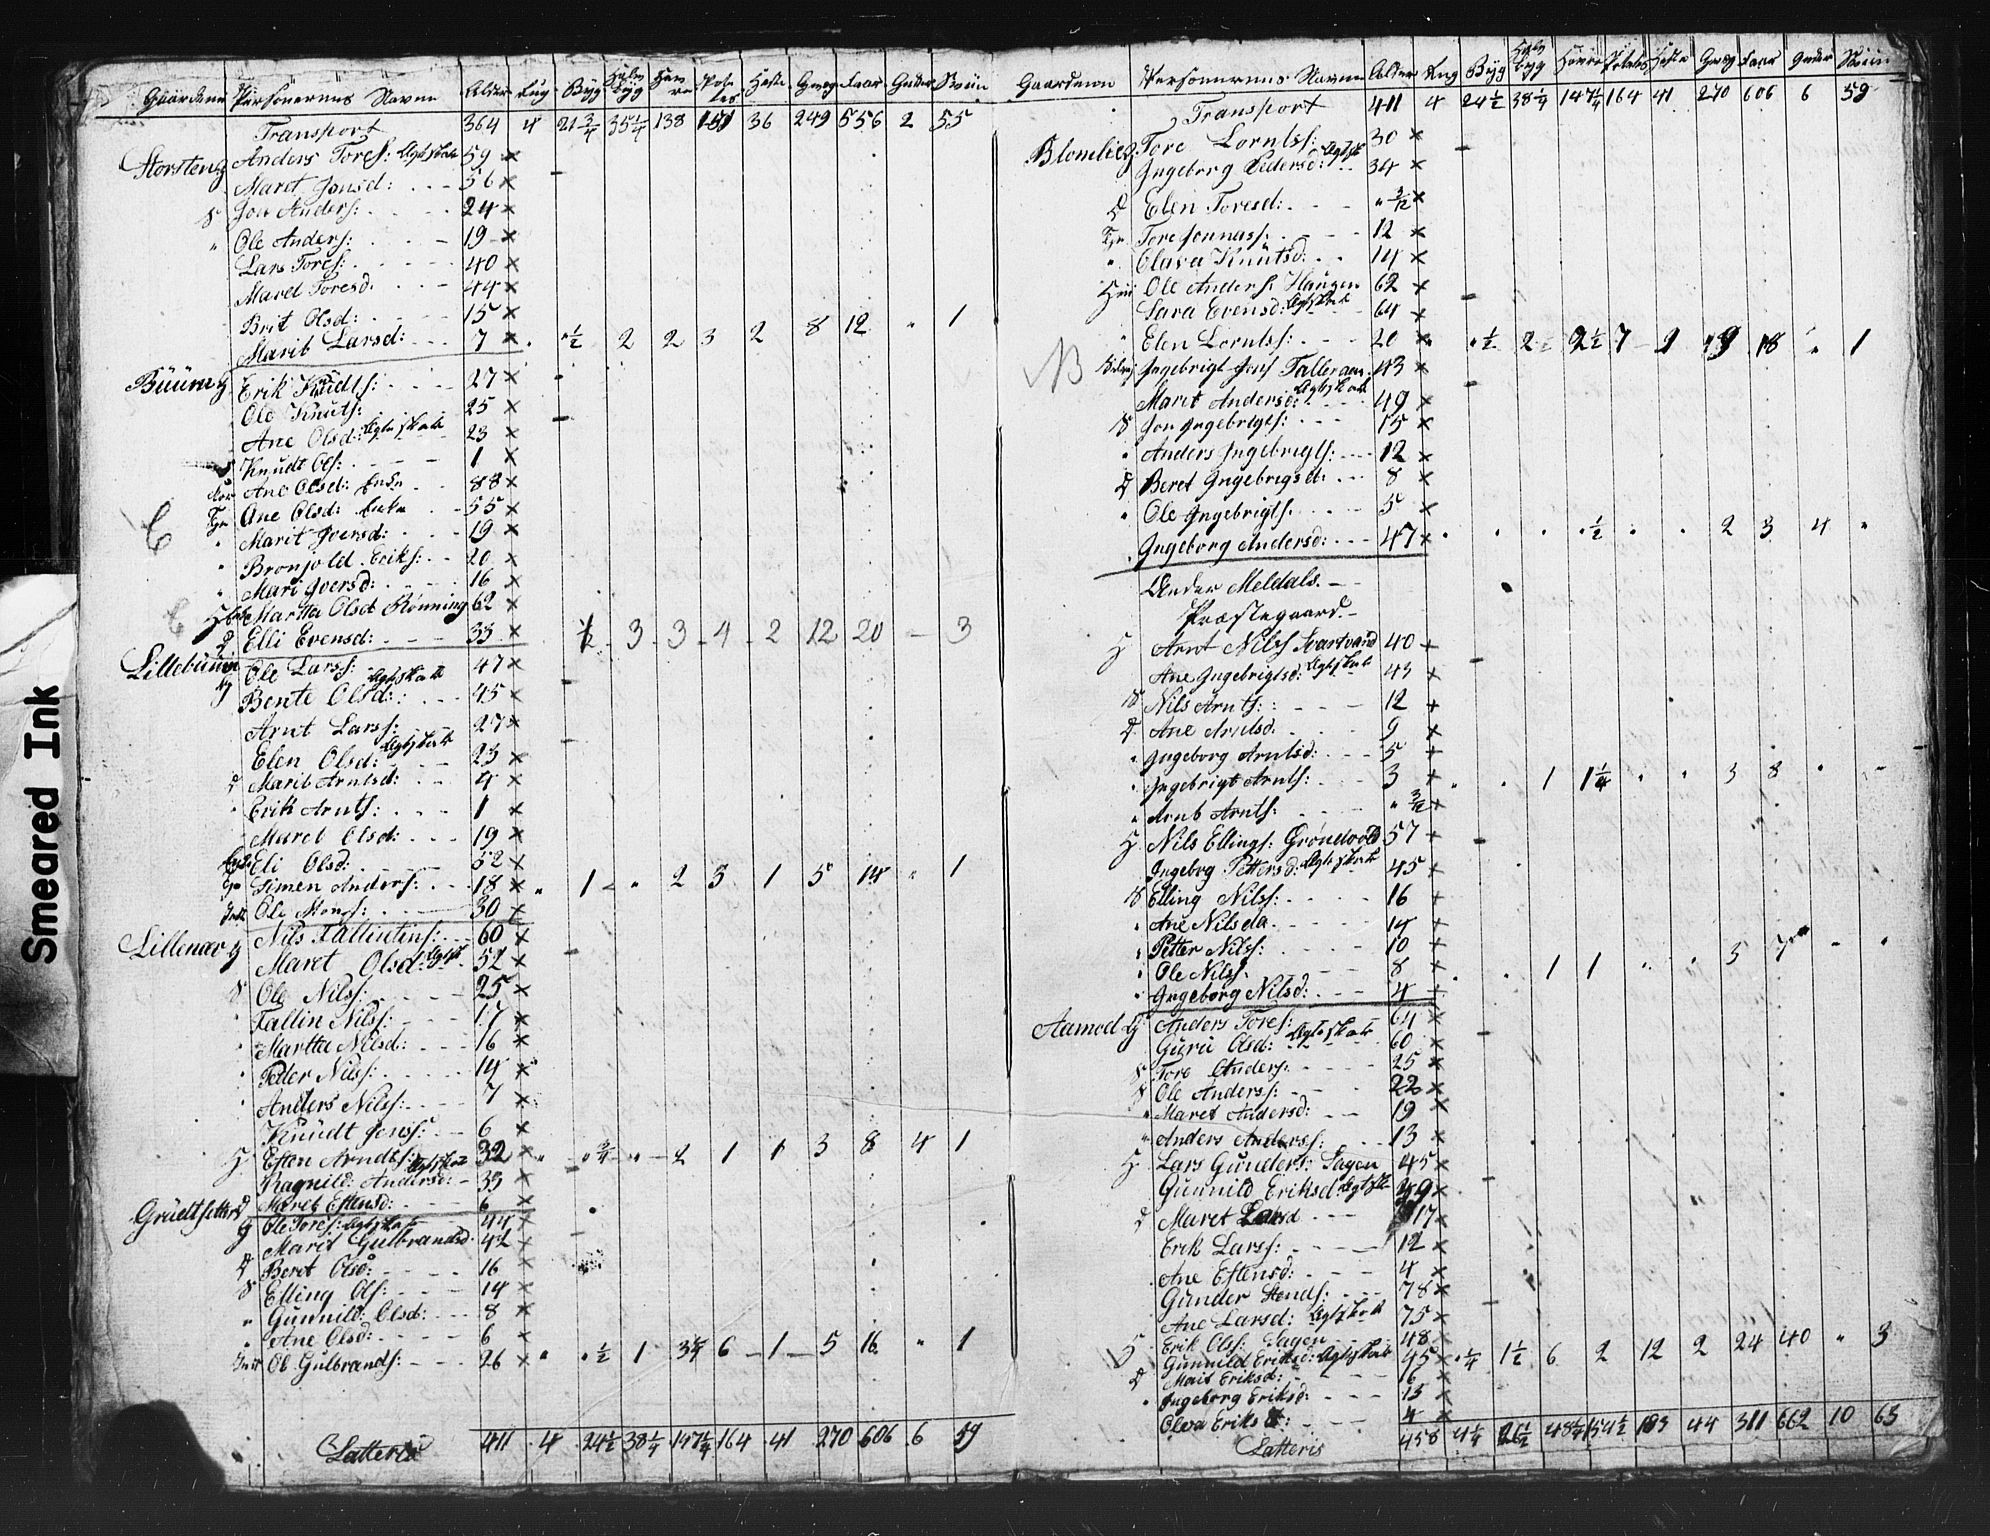 Smeared Ink
Gaardene Personernes Navne Alder Rug Byg Havre Poteter Heste Qvæg Faar Geder Sviin
Transport 364 4 21 3/4 35 1/4 138 151 36 249 556 2 55
Storsteng Anders Tores: 59 ×
Maret Jonsd: 56 ×
S Jon Anders: 24 ×
" Ole Anders: 19 ×
Lars Tores: 40 ×
Maret Toresd: 44 ×
Brit Olsd: 15 ×
Marit Larsd: 7 × 1/2 2 2 3 2 8 12 " 1
Büüm g Erik Knudts: 27 ×
Ole Knuts: 25 ×
Ane Olsd: 23 ×
S Knudt Ols: 1 ×
Ane Olsd: Enke 88 ×
Ane Olsd: Enke 55 ×
" Marit Iversd: 19 ×
" Bronjold Eriks: 20 ×
" Mari Iversd: 16 ×
Martta Olsd Rönning 62 ×
D Elli Evensd: 33 × 1/2 3 3 4 2 12 20 – 3
Lillebüüm g Ole Larss: 47 ×
Bente Olsd: 45 ×
Arnt Larss: 27 ×
Elen Olsd: 23 ×
D Marit Arntsd: 4 ×
" Erik Arnts: 1 ×
Maret Olsd: 19 ×
Eli Olsd: 52 ×
Simen Anders: 18 × " 1 " 2 3 1 5 14 " 1
Ole Mons: 30 ×
Lillenær g Nils Tallintins: 60 ×
Maret Olsd: 52 ×
S Ole Nilss: 25 ×
" Tallin Nilss: 17 ×
" Martta Nilsd: 16 ×
" Peder Nilss: 14 ×
" Anders Nilss: 7 ×
Knudt Jenss: 6 ×
H Esten Arndts: 32 × " 3/4 " 2 1 1 3 8 4 1
Ragnild Andersd: 33 ×
D Maret Estensd: 6 ×
Grüetsetter g Ole Tores: 44 ×
Marit Gulbrandsd. 42 ×
D Beret Olsd: 16 ×
S Elling Ols: 14 ×
" Gunnild: Olsd: 8 ×
" Ane Olsd: 6 ×
Ol Gulbrands: 26 × " 1/2 1 3 3/4 6 1 5 16 " 1
Latteris 411 4 24 1/2 38 1/4 147 1/4 164 41 270 606 6 59
Gaardenn Personernes Navne Alder Rug Byg Havre Potetes Heste Qvæg Faar Geder Sviin
Transport 411 4 24 1/2 38 1/4 147 1/4 164 41 270 606 6 59
Blomlie g. Tore Lorntss: 30 ×
Ingeborg Pedersd: 34 ×
D Elen Toresd: " 3/12 ×
Tore Jonnass: 12 ×
" Olava Knütsd: 14 ×
Ole Anders: Haugen 62 ×
Sara Evensd: 64 ×
Elen Lorntss: 20 × 1/2 2 2 1/2 7 2 19 18 " 1
NB Ingebrigt Jens Talleraas 43 ×
Marit Andersd: 49 ×
S Jon Ingebrigts: 15 ×
" Anders Ingebrigts: 12 ×
D Beret Ingebrigsd: 8 ×
" Ole Ingebrigts: 5 ×
Ingeborg Andersd: 47 × " " " 1/2 " " 2 3 4 "
Under Meldals
Præstegaard
H Arnt Nils Svartvand 40 +
Ane Ingebrigtsd: 43 +
S Nils Arnts: 12 +
D Ane Arntsd. 9 +
" Ingeborg Arntsd: 5 +
" Ingebrigt Arnts: 3 + " 1 1 1/4 " " 3 8 " –
" Arnt Arnts: " 3/12 +
H Nils Ellings: Grönvold 57 +
Ingebrg Pettersd: 45 +
S Elling Nilss: 16 +
" Ane Nilsda 14 +
" Petter Nilss: 10 +
" Ole Nilss. 8 + " " 1 1 " " 5 7 – "
" Ingeborg Nilsd: 4 +
Aamod g Anders Tores: 64 ×
Guru Olsd: 60 ×
S Tore Anders: 25 ×
S Ole Anderss: 22 ×
" Maret Andersd: 19 ×
" Anders Anderss: 13 ×
H Lars Gunders: Sagen 45 ×
Gunnild Eriksd 49 ×
D Maret Larsd 17 ×
Erik Larss: 12 ×
Ane Estensd: 4 ×
Gunder Stends: 78 ×
Ane Larsd: 75 ×
H Erik Olss: Sagen 48 ×
Gunnild Eriksd: 45 × 1/4 1 1/2 6 2 12 2 24 40 " 3
D Mait Eriksd: 16 ×
" Ingeborg Eriksd: 13 ×
Olva Eriksd: 4 ×
Latteris 458 4 1/4 26 1/2 48 1/4 154 1/2 193 44 311 662 10 63